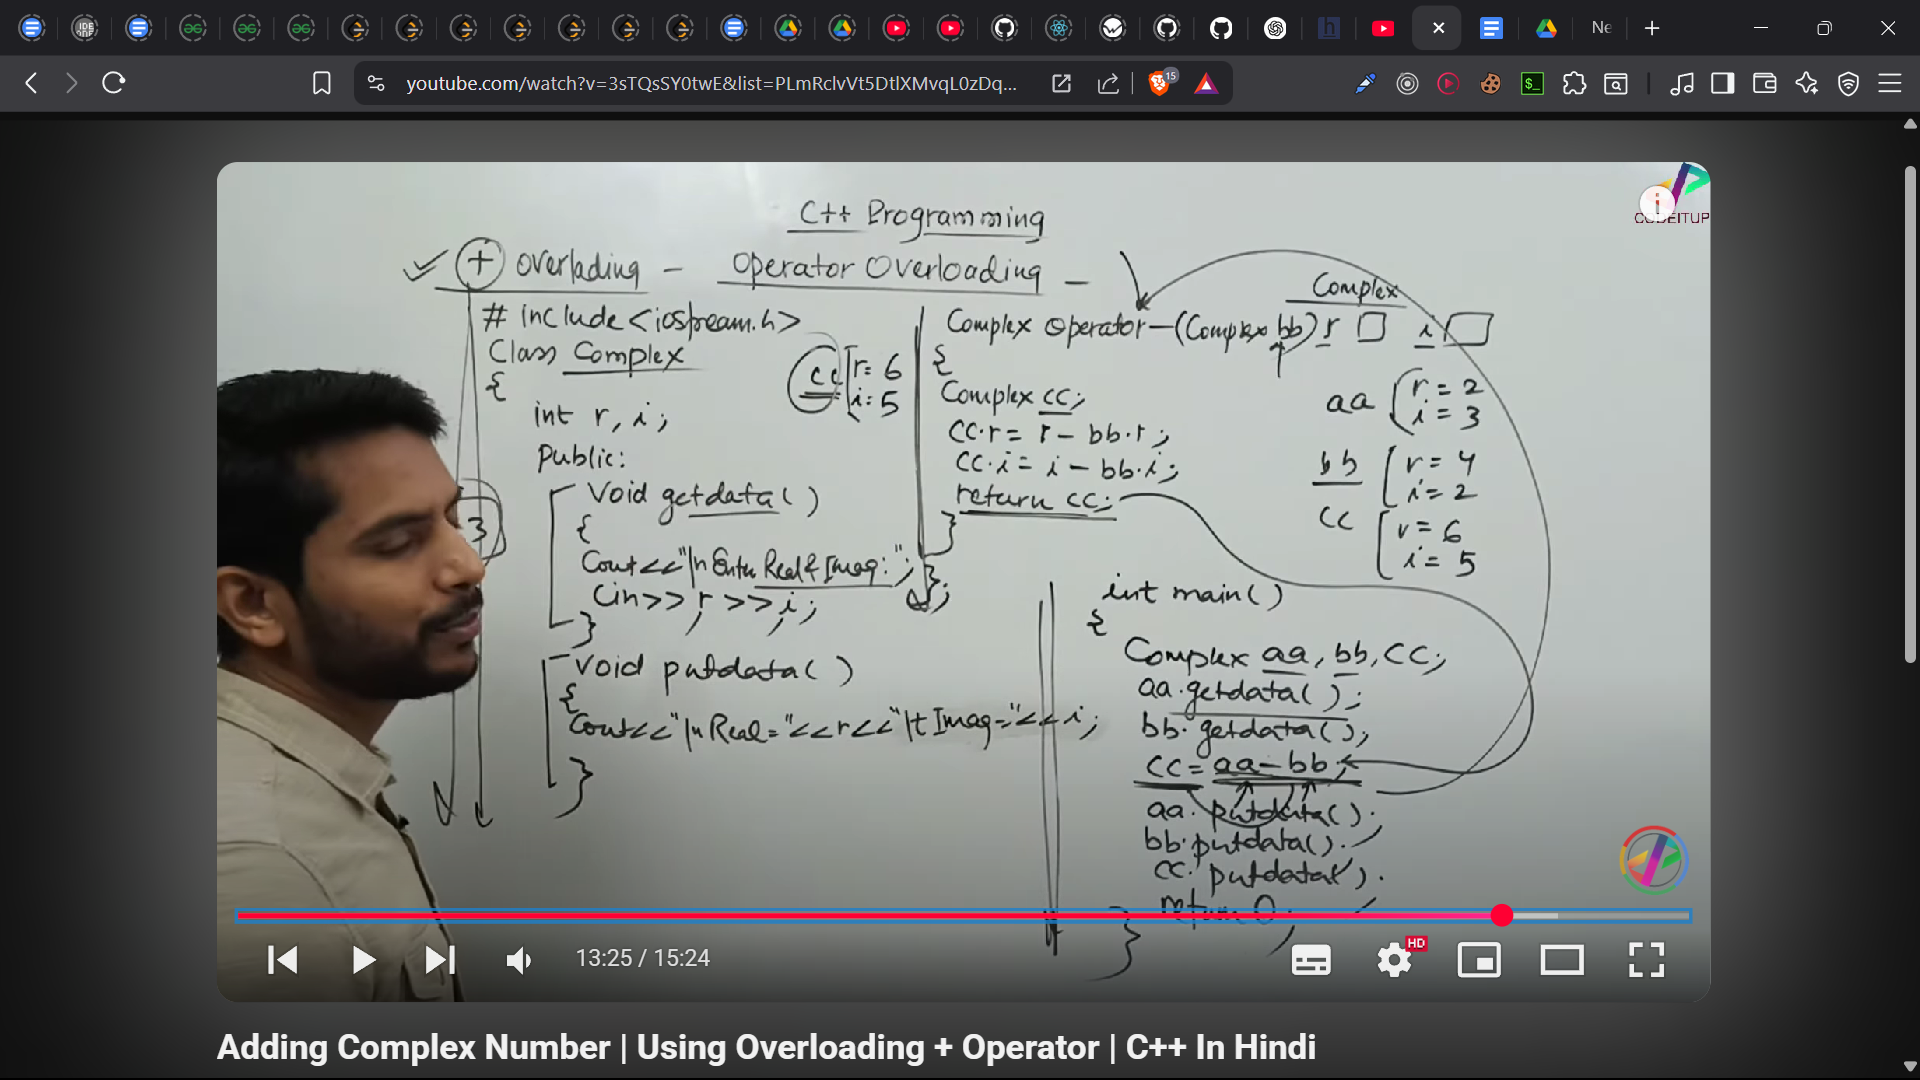 Ne
youtube.com/watch?v=3sTQsSY0twE&list=PLmRclvVt5DtlXMvqL0zDq...
15
CODEITUP
C++ Programming
+ overlading - Operator Overloading -
# include <iostream.h>
Class Complex
{
int r, i;
Public:
Void getdata( )
{
Cout<<"\n Enter Real & Imag:";
Cin>> r >> i;
}
Void putdata( )
{
Cout<<"\n Real="<<r<<"\t Imag="<<i;
}
3
cc r= 6
i= 5
Complex Operator-(Complex bb)
{
Complex cc;
cc.r = r - bb.r;
cc.i = i - bb.i;
return cc;
}
};
Complex
r i
aa r = 2
i = 3
bb r = 4
i = 2
cc r = 6
i = 5
int main( )
{
Complex aa, bb, cc;
aa.getdata( );
bb.getdata( );
cc = aa - bb;
aa.putdata( ).
bb.putdata( ).
cc.putdata( ).
return 0;
}
13:25 / 15:24
HD
Adding Complex Number | Using Overloading + Operator | C++ In Hindi